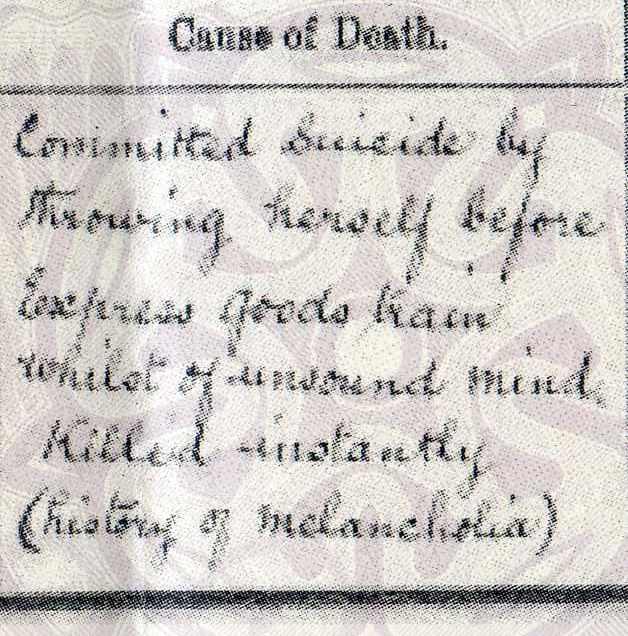 Cause of Death.
Committed Suicide by
throwing herself before
Express goods train
whilst of unsound mind.
Killed instantly
(history of melancholia)